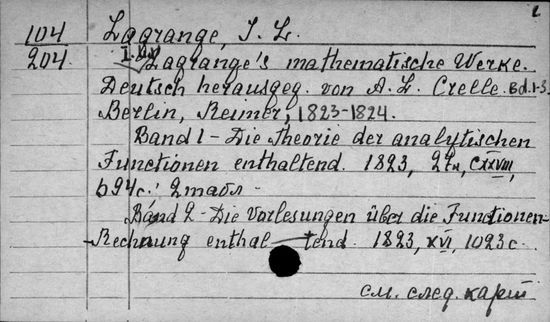 104 Lagrange, J. L.
204 Lagrange's mathematische Werke.
Deutsch herausgeg. von A. L. Crelle. Bd. 1-3.
Berlin, Reimer, 1823-1824.
Band 1 - Die Theorie der analytischen
Functionen enthaltend. 1823, CXXVIII,
694 с.; 2 табл -
Band 2 - Die Vorlesungen über die Functionen-
Rechnung enthaltend. 1823, XVI, 1023 с.
см. след. карт